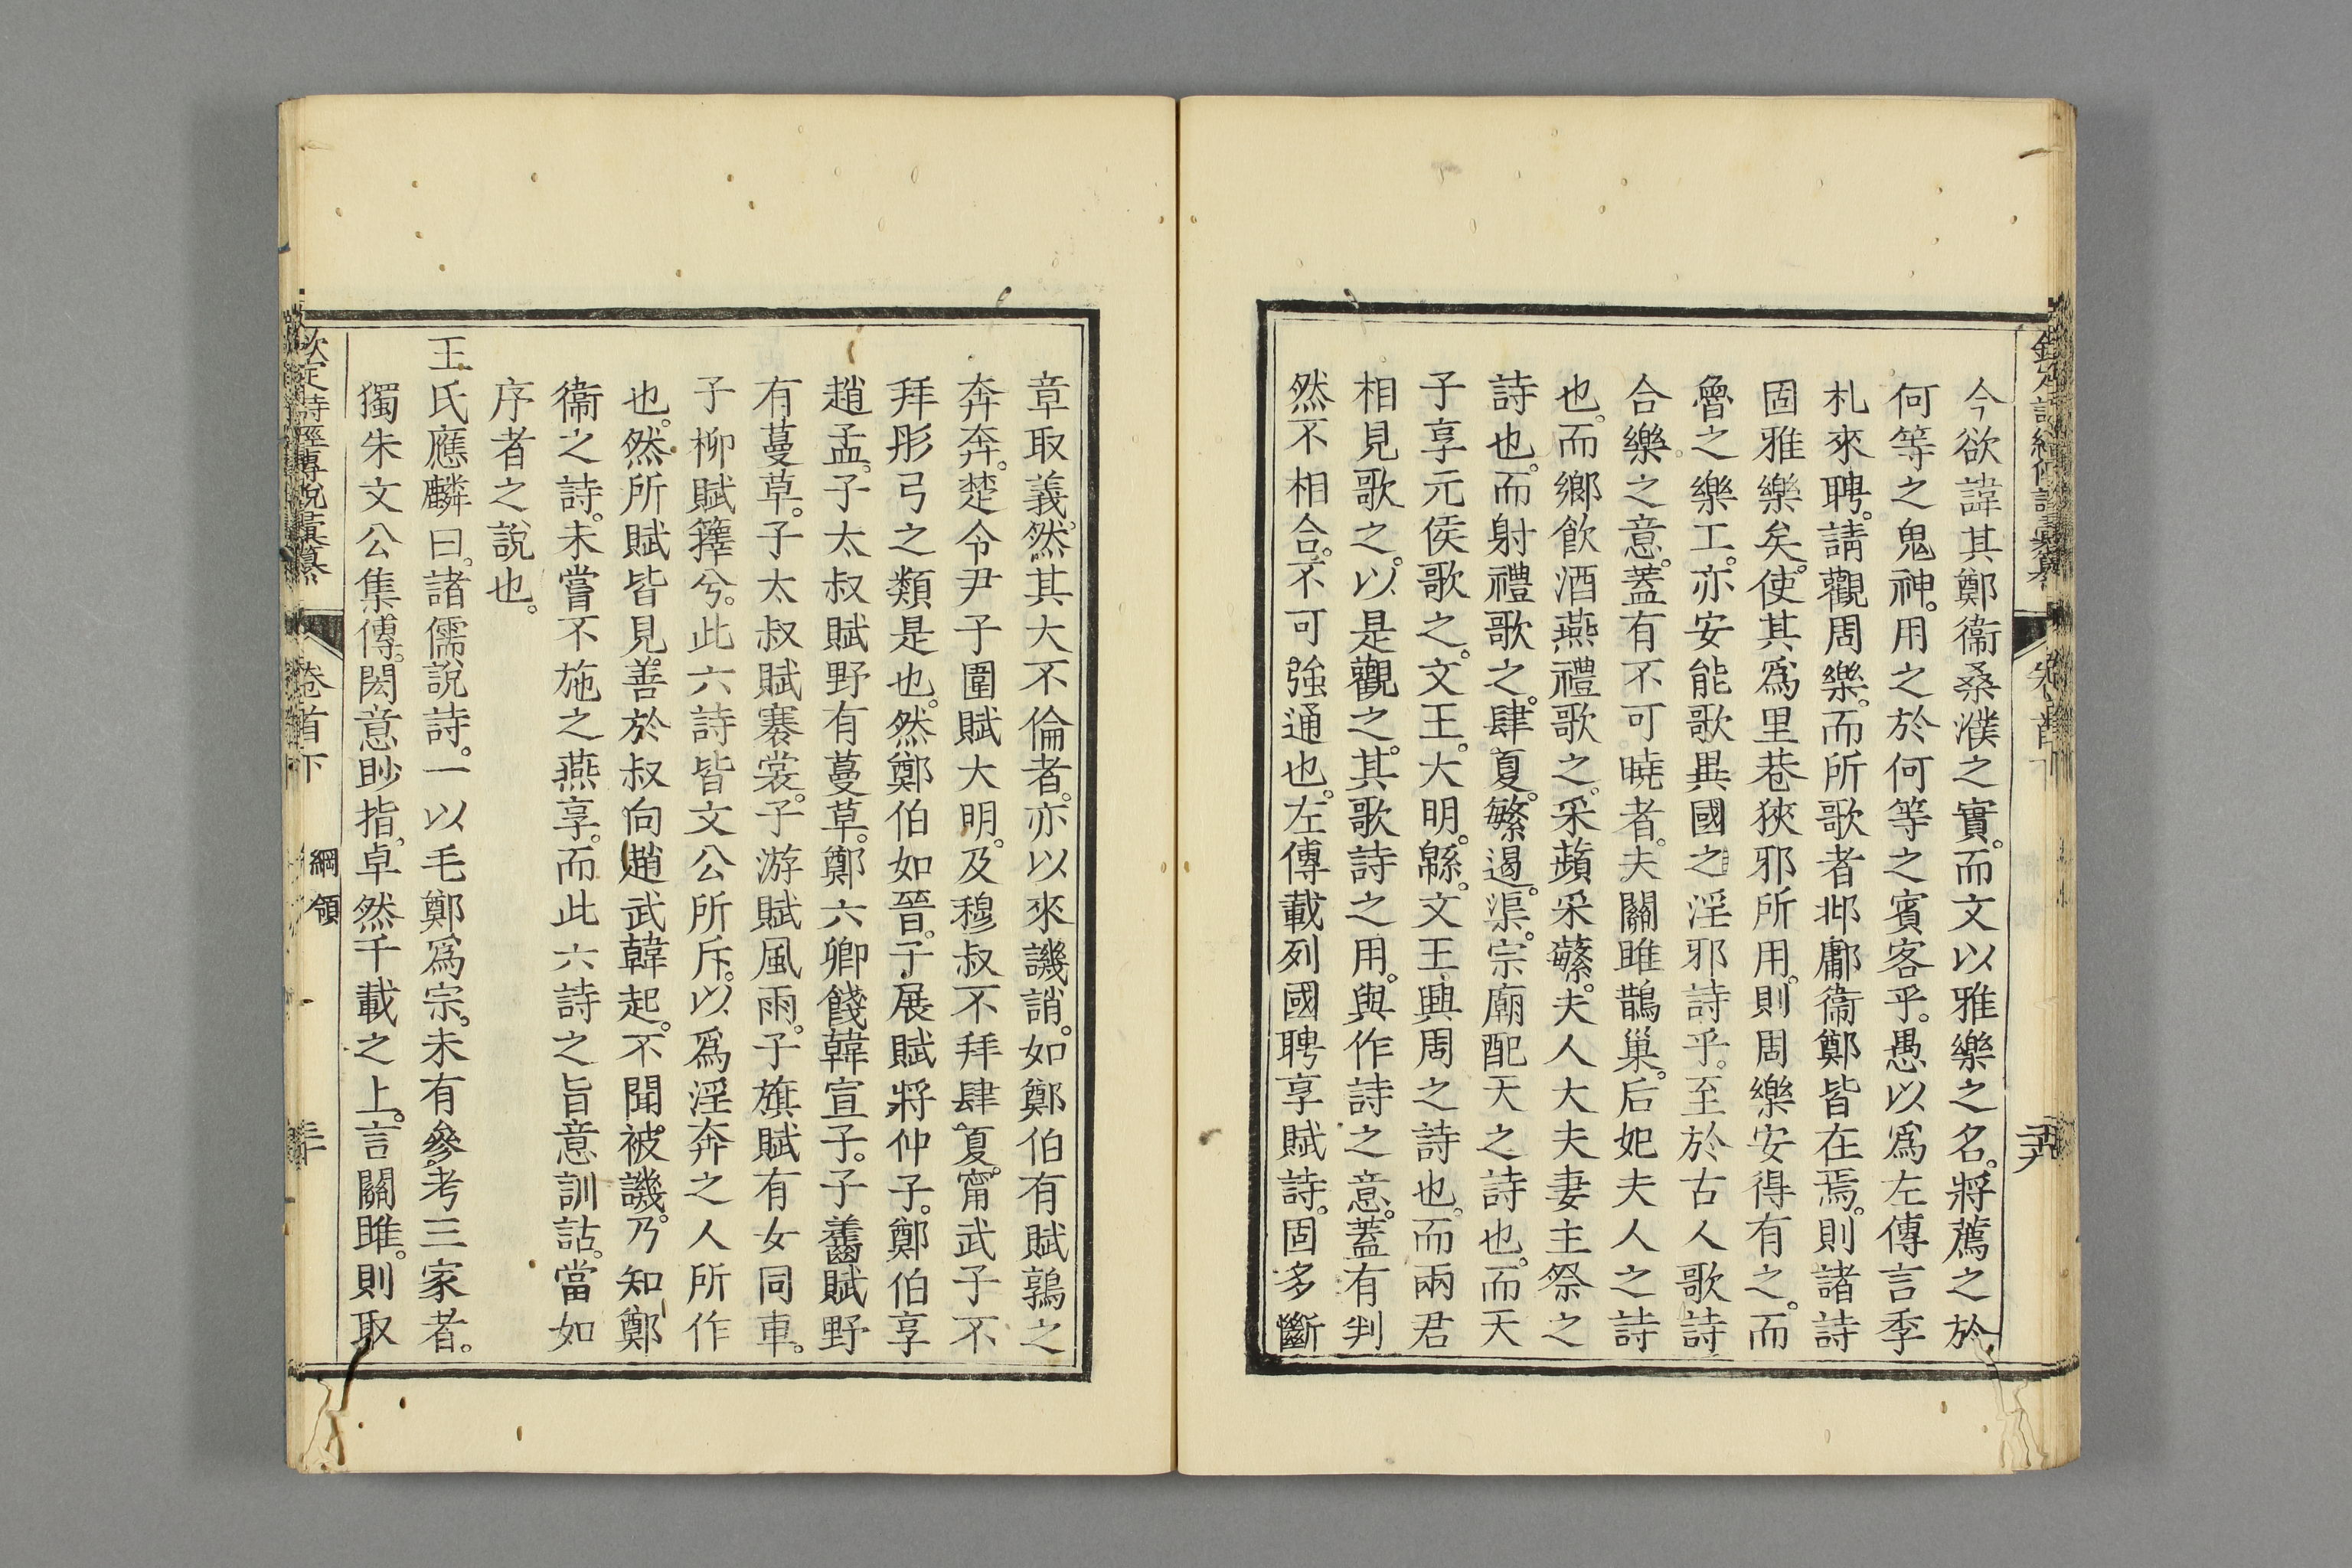 今欲諱其鄭衞桑濮之實。而文以雅樂之名。將薦之於
何等之鬼神。用之於何等之賓客乎。愚以爲左傳言季
札來聘。請觀周樂。而所歌者邶鄘衞鄭皆在焉。則諸詩
固雅樂矣。使其爲里巷狹邪所用。則周樂安得有之。而
魯之樂工。亦安能歌異國之淫邪詩乎。至於古人歌詩
合樂之意。蓋有不可曉者。夫關雎鵲巢。后妃夫人之詩
也。而鄉飲酒燕禮歌之。采蘋采蘩。夫人大夫妻主祭之
詩也。而射禮歌之。肆夏。繁遏。渠。宗廟配天之詩也。而天
子享元侯歌之。文王。大明。緜。文王興周之詩也。而兩君
相見歌之。以是觀之。其歌詩之用。與作詩之意。蓋有判
然不相合。不可強通也。左傳載列國聘享賦詩。固多斷
章取義。然其大不倫者。亦以來譏誚。如鄭伯有賦鶉之
奔奔。楚令尹子圍賦大明。及穆叔不拜肆夏。甯武子不
拜彤弓之類是也。然鄭伯如晉。子展賦將仲子。鄭伯享
趙孟。子太叔賦野有蔓草。鄭六卿餞韓宣子。子齹賦野
有蔓草。子太叔賦褰裳。子游賦風雨。子旗賦有女同車。
子柳賦蘀兮。此六詩皆文公所斥。以爲淫奔之人所作
也。然所賦皆見善於叔向趙武韓起。不聞被譏。乃知鄭
衞之詩。未嘗不施之燕享。而此六詩之旨意訓詁。當如
序者之說也。
王氏應麟曰。諸儒說詩。一以毛鄭爲宗。未有參考三家者。
獨朱文公集傳。閎意眇指。卓然千載之上。言關雎。則取
欽定詩經傳說彙纂 卷首下 綱領 三十